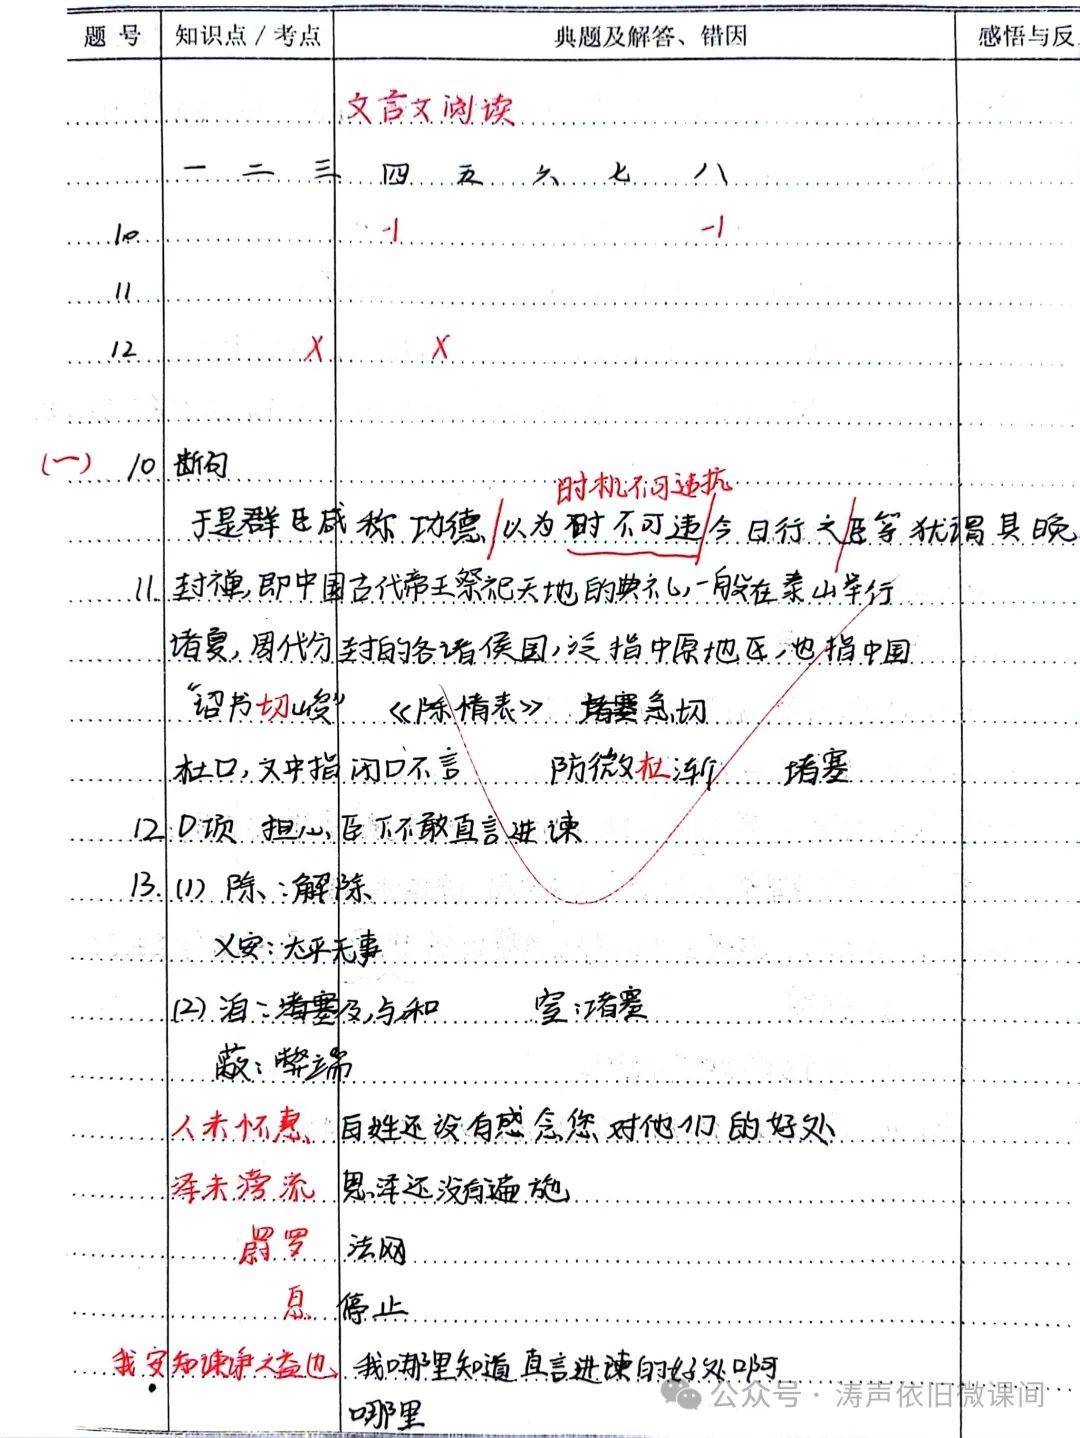 题 号 知识点/考点 典题及解答、错因 感悟与反
文言文阅读
一 二 三 四 五 六 七 八
10 -1 -1
11
12 X X
(一) 10 断句
时机不可违抗
于是群臣咸称功德/以为时不可违/今日行之/臣等犹谓其晚
11. 封禅,即中国古代帝王祭祀天地的典礼,一般在泰山举行
诸夏,周代分封的各诸侯国,泛指中原地区,也指中国
“诏书切峻” 《陈情表》 急切
杜口,文中指闭口不言 防微杜渐 堵塞
12. D项 担心臣下不敢直言进谏
13. (1) 除:解除
乂安:太平无事
(2) 洎:及,与和 窒:堵塞
蔽:弊端
人未怀惠 百姓还没有感念您对他们的好处
泽未滂流 恩泽还没有遍施
罻罗 法网
息 停止
我安知谏诤之益也 我哪里知道直言进谏的好处啊
哪里
公众号·涛声依旧微课间